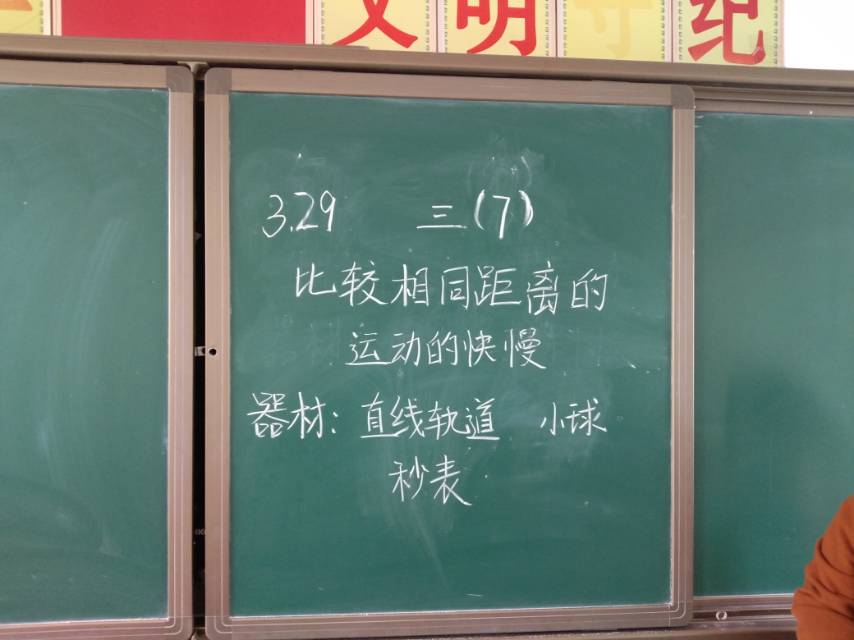 文明守纪
3.29 三(7)
比较相同距离的
运动的快慢
器材：直线轨道 小球
秒表